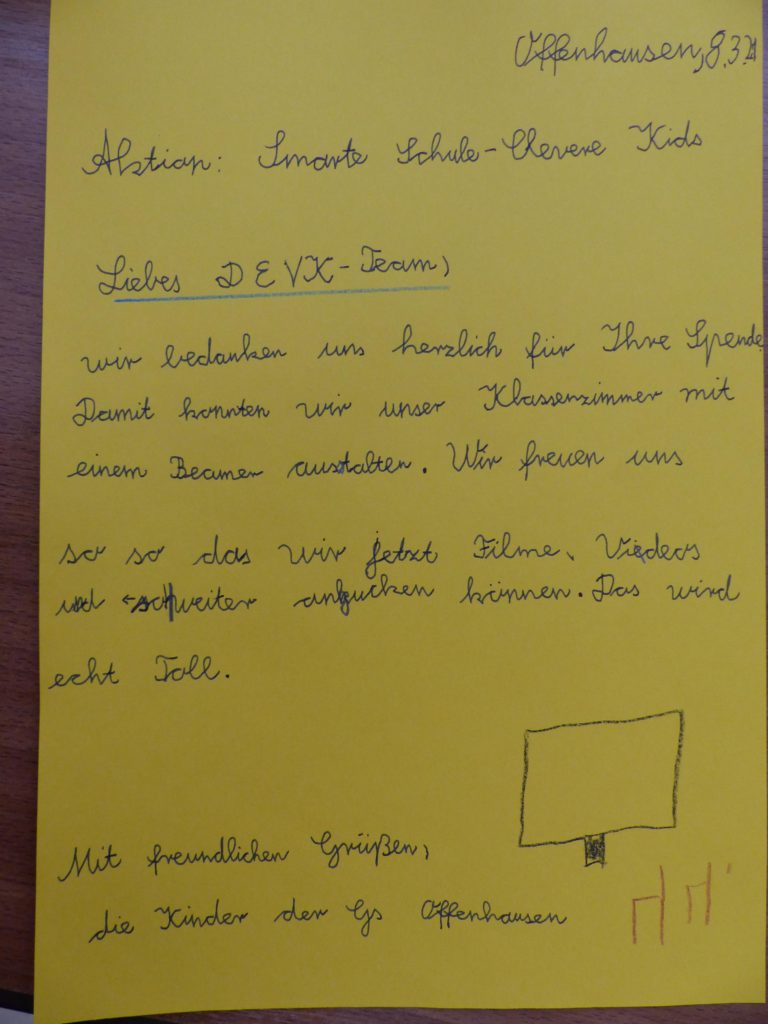 Offenhausen, 8.3.21
Aktion: Smarte Schule - Clevere Kids
Liebes DEVK-Team,
wir bedanken uns herzlich für Ihre Spende
Damit konnten wir unser Klassenzimmer mit
einem Beamer austalten. Wir freuen uns
so so das wir jetzt Filme, Videos
und so weiter angucken können. Das wird
echt Toll.
Mit freundlichen Grüßen,
die Kinder der Gs Offenhausen